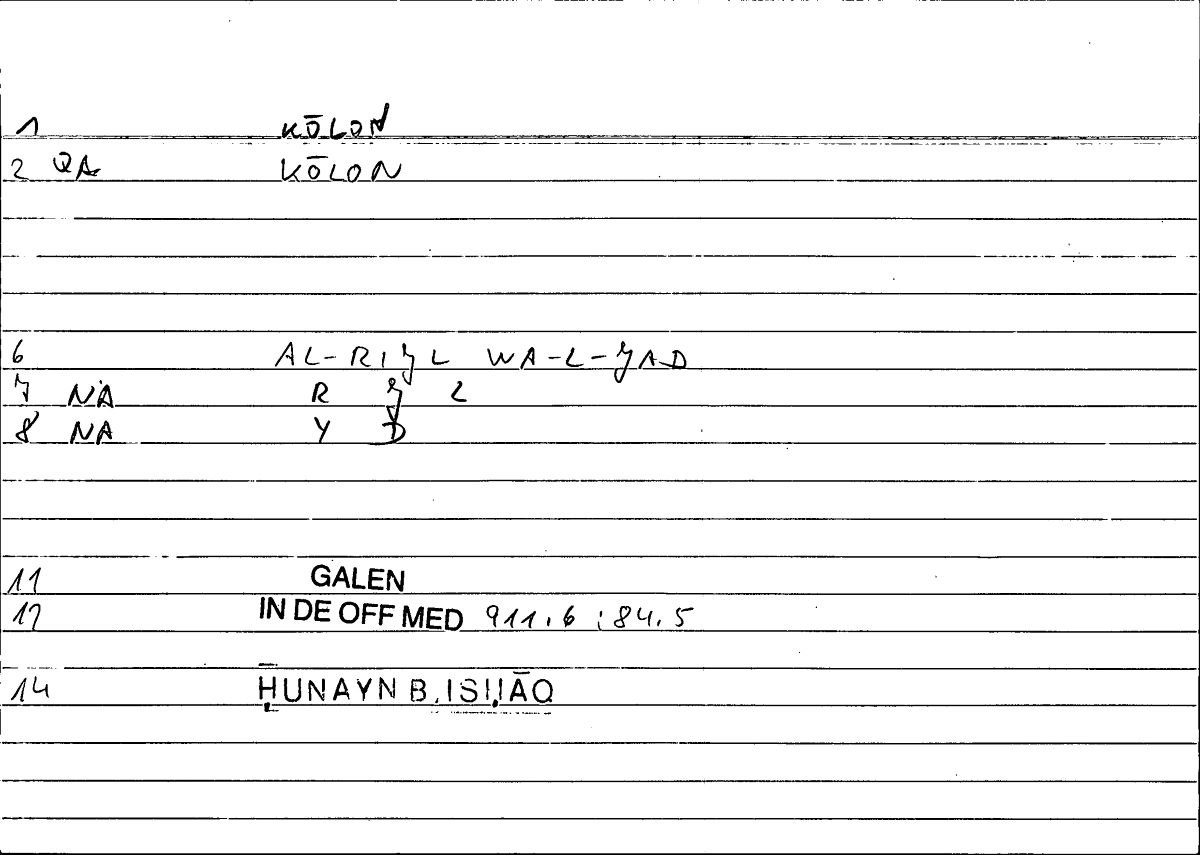 1 KŌLON
2 QA KŌLON
6 AL-RIJL WA-L-JAD
7 NA R J L
8 NA Y D
11 GALEN
12 IN DE OFF MED 911.6 : 84.5
14 ḤUNAYN B. ISḤĀQ